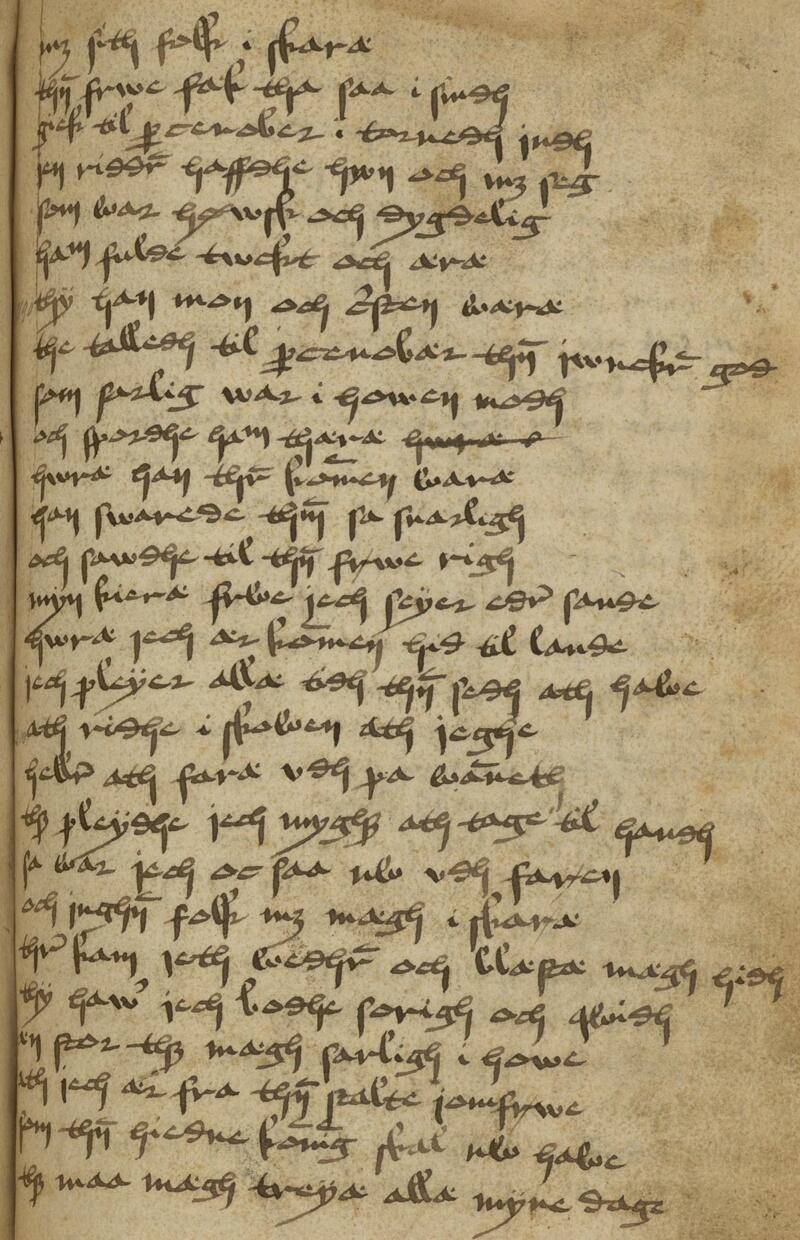 mꝫ sith folk i skaræ
thn̄ frwe fak tha saa i sindh
gick til ꝑcenober i tornedh jndh
en riddr̄ haffdhe hwn och mꝫ seg
som war høwsk och dygdelig
ham fulde twckt och æræ
thy han mon och cristen wæræ
the talledh til ꝑcenobær thn̄ jwnckr̄ god
som sarlig war i howen modh
och spordhe ham thæræ
hwræ han thr̄ kom̄en waræ
han swarede thm̄ sa snarligh
och sawdhe til thn̄ frwe righ
myn kieræ frwe jech seyer edr̄ sande
hwræ jech ær kom̄en hid til lande
jech pleyer allæ tidh thn̄ sedh ath hawe
ath ridhe i skowen ath jeghe
hellr̄ ath faræ vdh pa wan̄eth
thꝫ pleydhe jech myghꝫ ath tage til handh
sa war jech oc saa nw vdh faren
och jnghn̄ folk mꝫ mægh i skaræ
thr̄ kam jeth wedhr̄ och blæstæ mægh hidh
thy haw̄ jech bodhe sorigh och qwidh
æn stor thꝫ mægh sarligh i howe
ath jech ær fra thn̄ stalte jomfrwe
som thn̄ hiedne kon̄ig skal nw hawe
thꝫ maa mægh treyæ allæ myne dage